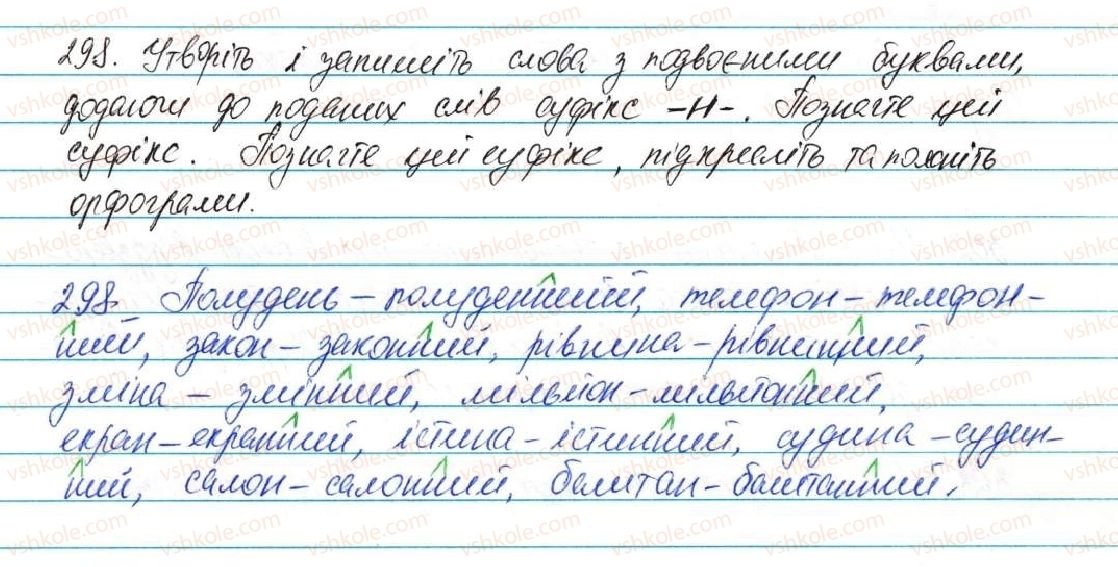 298. Утворіть і запишіть слова з подвоєними буквами,
додаючи до поданих слів суфікс -н-. Позначте цей
суфікс. Позначте цей суфікс, підкресліть та поясніть
орфограми.
298. Полудень - полуденний, телефон - телефон-
ний, закон - законний, рівнина - рівнинний,
зміна - змінний, мільйон - мільйонний,
екран - екранний, істина - істинний, судина - судин-
ний, салон - салонний, баштан - баштанний.